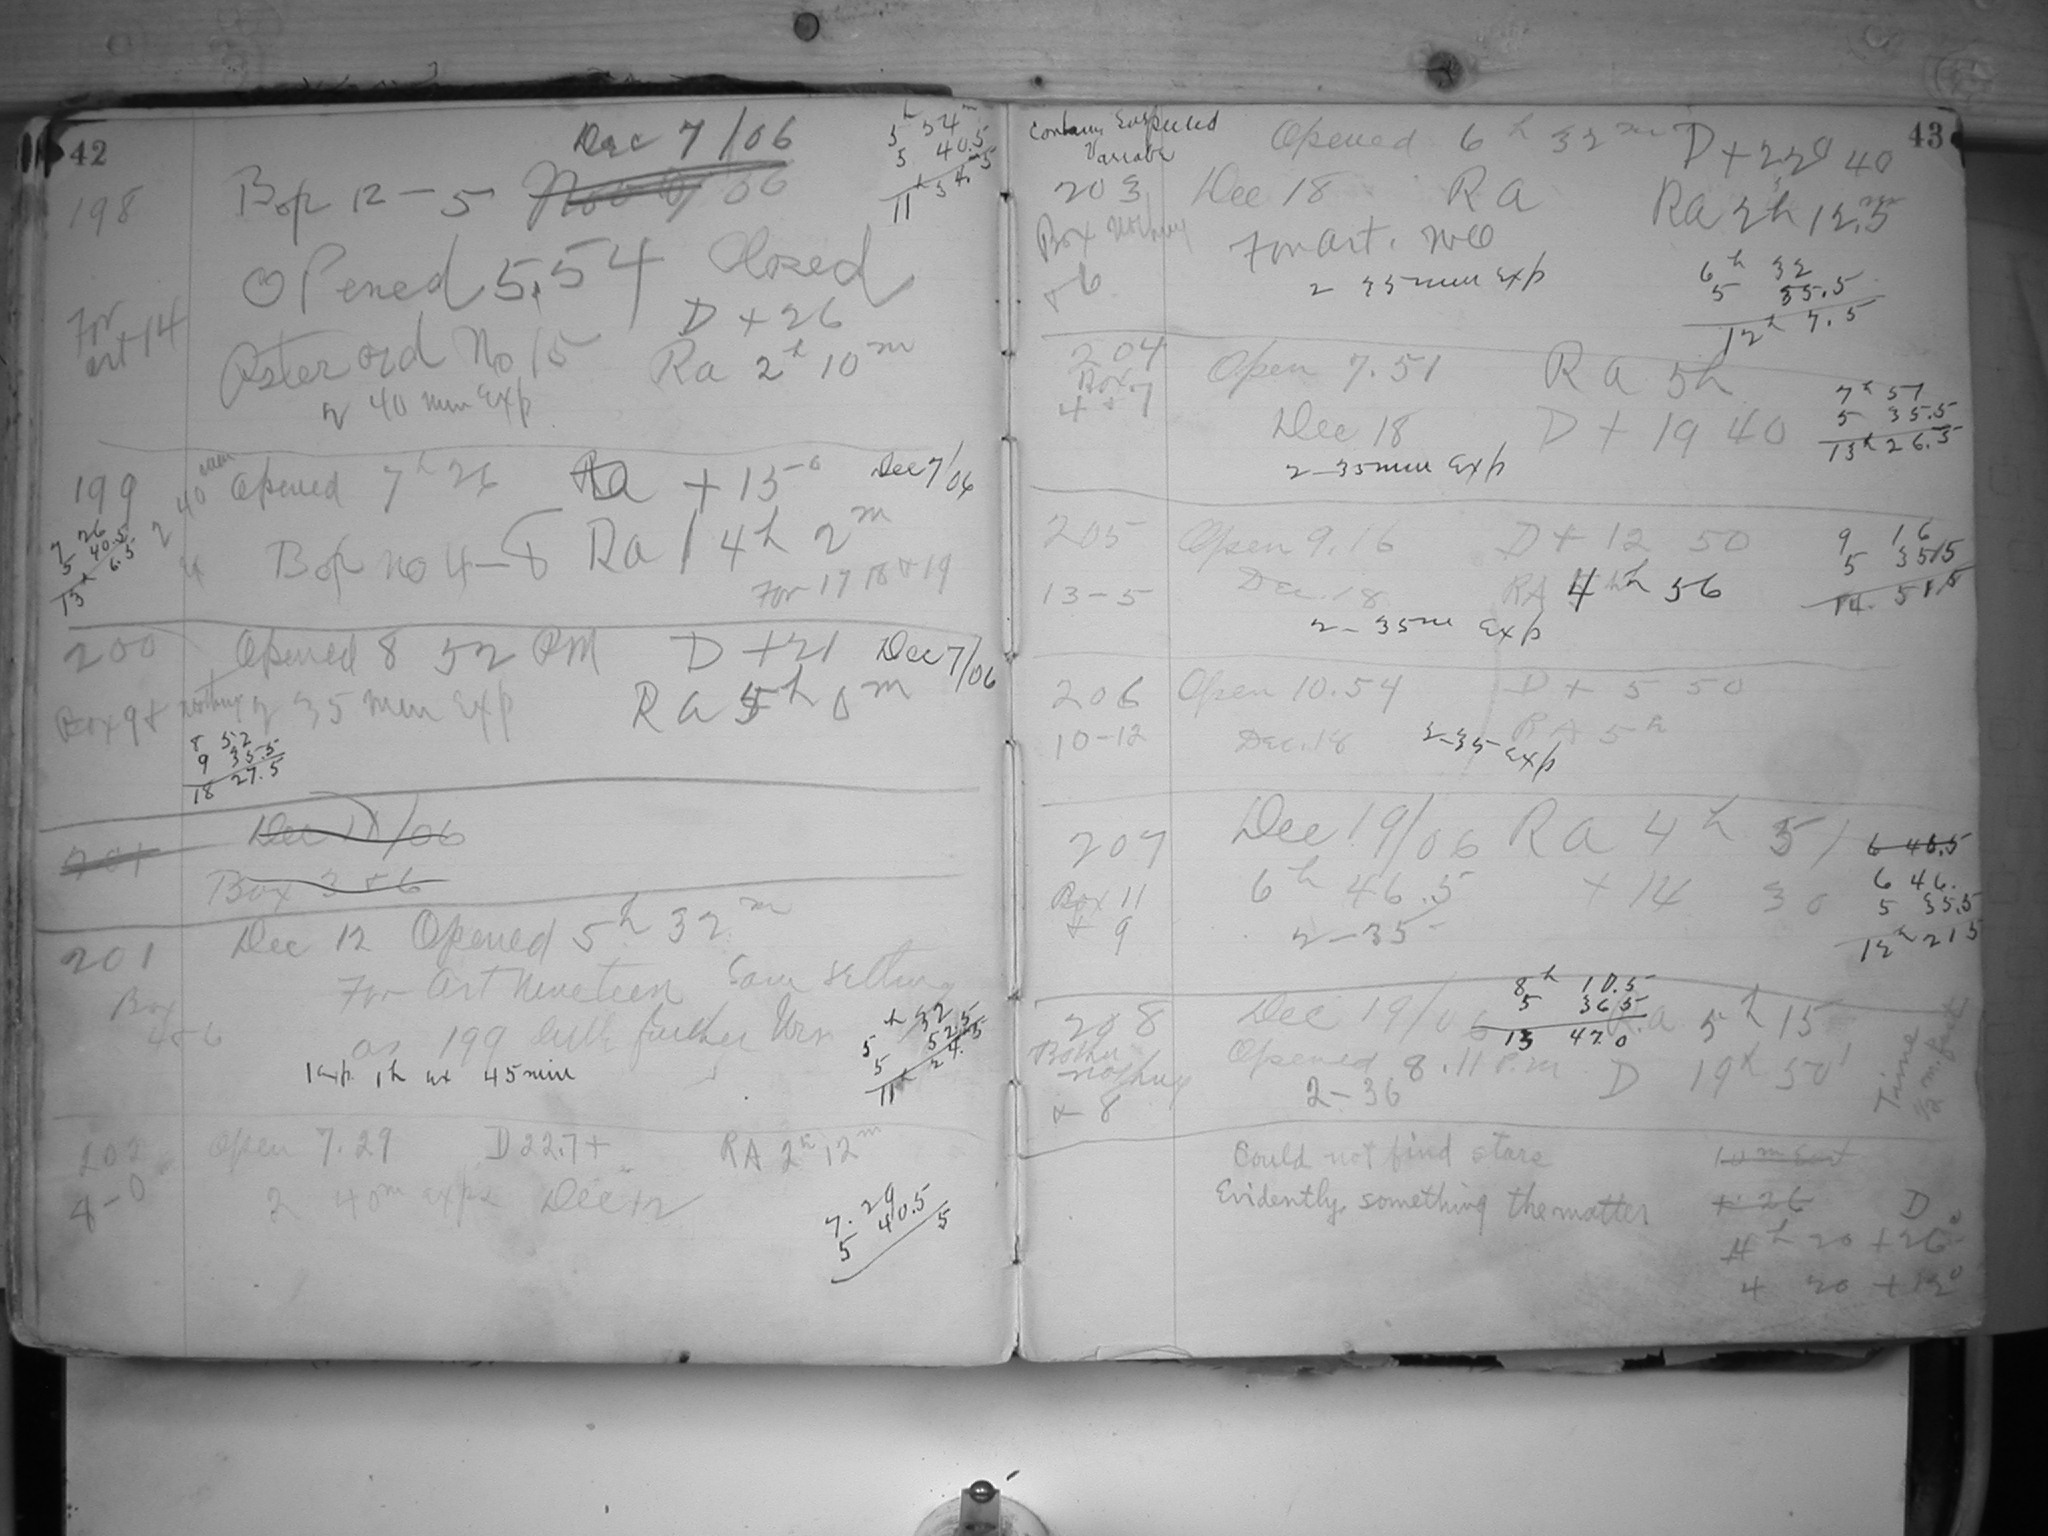 42
Dec 7/06
5h 54m
5 40.5
11h 34.5
198
Box 12-5
Opened 5.54 Closed
For
art 14
D +26
Asteroid No 15
Ra 2h 10m
2 40 min Exp
199
2 40 min
Opened 7h 26 Ra +15° Dec 7/06
7 26
5 40.5
13h 6.5
Box no 4-8 Ra 4h 2m
For 17 18 + 19
200
Opened 8 52 PM D +21 Dec 7/06
Box 9 + nothing 2 35 min Exp
Ra 5h 0m
8 52
9 35.5
18 27.5
201
Dec /06
Box 3 + 6
201
Dec 12 Opened 5h 32m
For Art Nineteen Same setting
Box
4 + 6
as 199 little further
1 exp. 1h 45 min
5h 32
5 52.5
11h 24.5
202
Open 7.29 D 22.7+ RA 2h 12m
4-0
2 40m exps Dec 12
7. 29
5 40.5
5
43
Contains Suspected
Variable
Opened 6h 32m D +22° 40
203
Dec 18 RA Ra 2h 12.5m
Box Nothing
+ 6
For art.
2 35 min Exp
6h 32
5 35.5
12h 7.5
204
Box.
4 + 7
Open 7.51 Ra 5h
Dec 18 D + 19 40
2-35 min Exp
7h 51
5 35.5
13h 26.5
205
Open 9.16 D + 12 50
13-5
Dec. 18 RA 4h 56
2-35m Exp
9 16
5 35.5
14. 51.5
206
Open 10.54 D + 5 50
10-12
Dec. 18 2-35 Exp RA 5h
207
Dec 19/06 Ra 4h 51
Box 11
+ 9
6h 46.5 +14 30
2-35
6 46.5
6 46.
5 35.5
12h 21.5
208
Dec 19/06 Ra 5h 15
8h 10.5
5 36.5
13 47.0
Box
nothing
+ 8
Opened 8.11 P.m. D 19+ 50'
2-36
Time
1/2 m. fast
Could not find stars
Evidently, something the matter
10m East
+ 26
D
4h 20 +26°
4 20 +12°